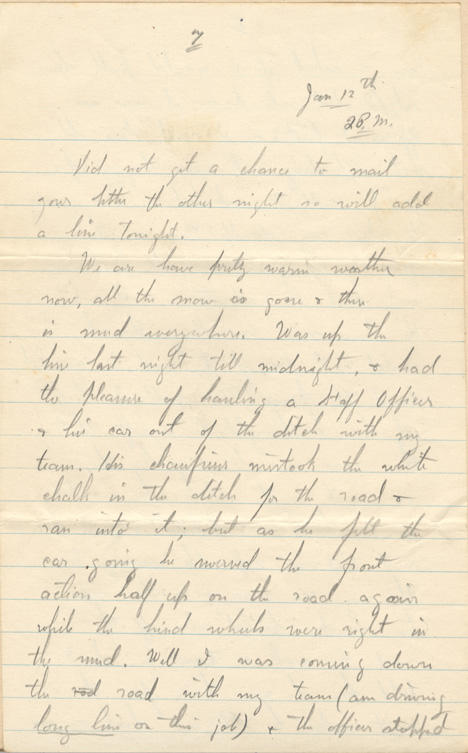 7
Jan 12th
2 P.M.
Did not get a chance to mail
your letter the other night so will add
a line tonight.
We are have pretty warm weather
now, all the snow is gone & there
is mud everywhere. Was up the
line last night till midnight, & had
the pleasure of hauling a Staff Officer
& his car out of the ditch with my
team. His chauffeur mistook the white
chalk in the ditch for the road &
ran into it; but as he felt the
car going he swerved the front
action half up on the road again
while the hind wheels were right in
the mud. Well I was coming down
the rod road with my team (am driving
long line on this job) & the officer stopped